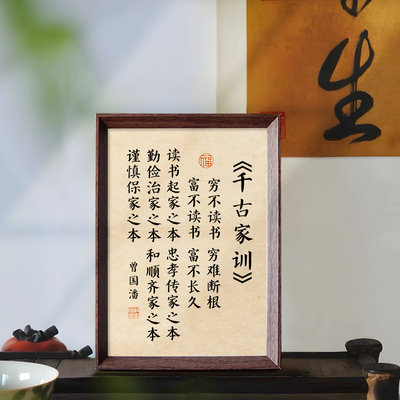 生
《千古家训》
福
穷不读书 穷难断根
富不读书 富不长久
读书起家之本 忠孝传家之本
勤俭治家之本 和顺齐家之本
谨慎保家之本
曾国潘